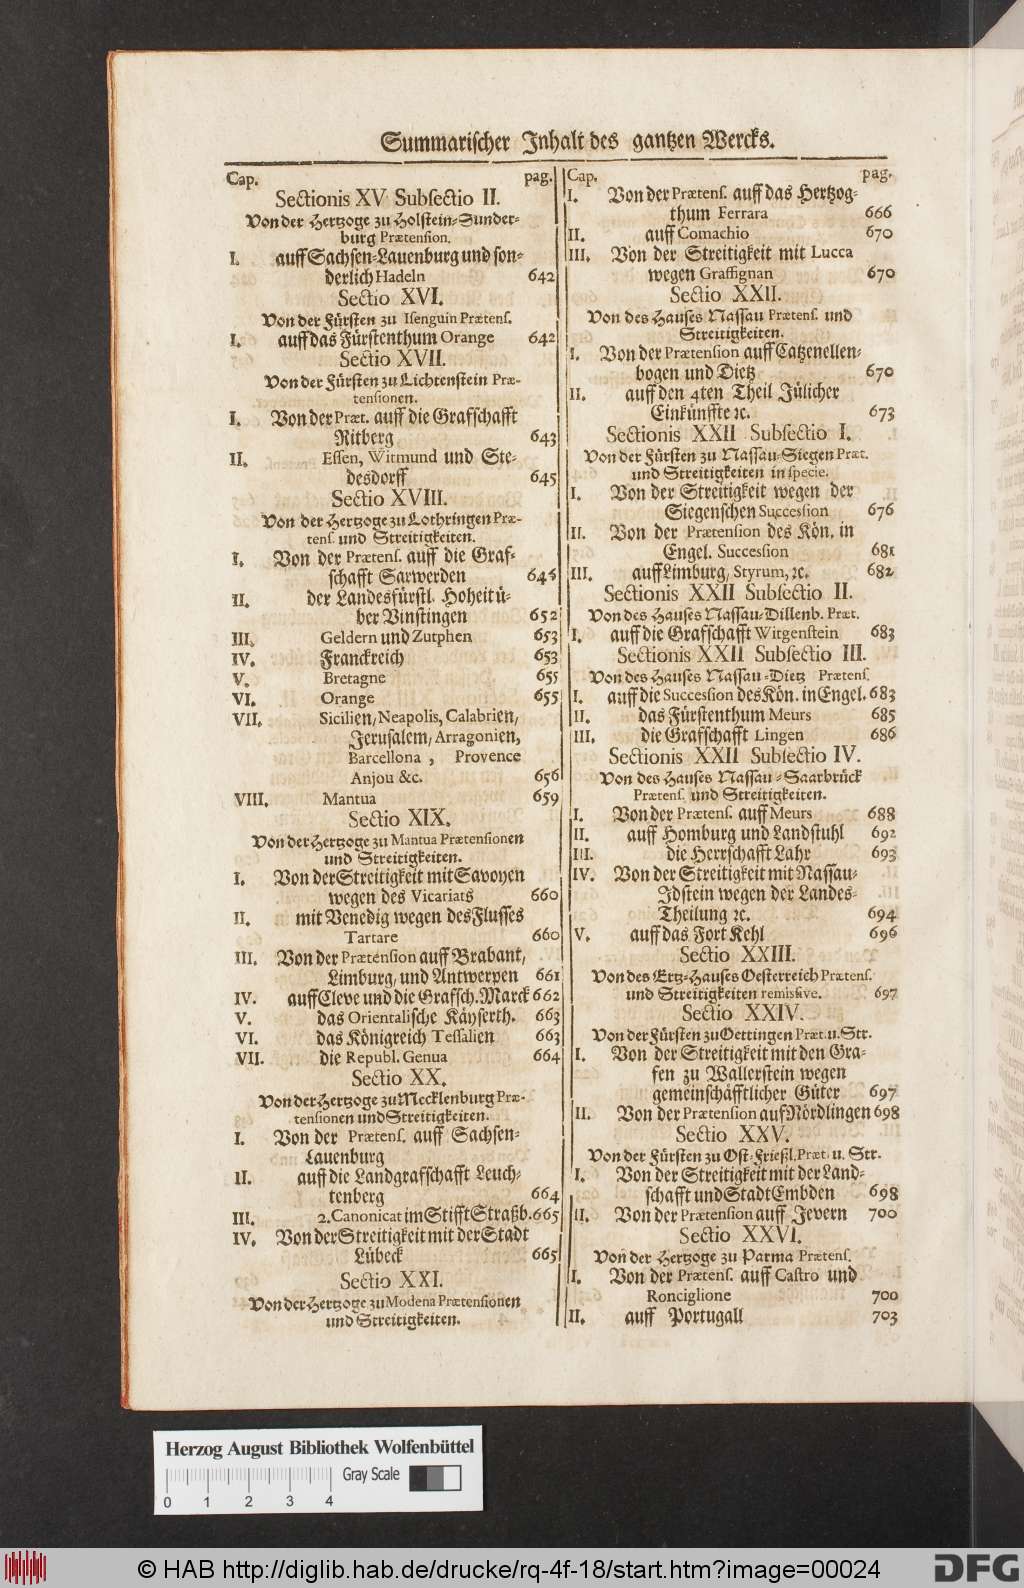 Summarischer Inhalt des gantzen Wercks.
Cap. pag.
Sectionis XV Subsectio II.
Von der Hertzoge zu Holstein-Sunder-
burg Prætension.
I. auff Sachsen-Lauenburg und son-
derlich Hadeln 642
Sectio XVI.
Von der Fürsten zu Isenguin Prætens.
I. auff das Fürstenthum Orange 642
Sectio XVII.
Von der Fürsten zu Lichtenstein Præ-
tensionen.
I. Von der Præt. auff die Grafschafft
Ritberg 643
II. Essen, Witmund und Ste-
desdorff 645
Sectio XVIII.
Von der Hertzoge zu Lothringen Præ-
tens. und Streitigkeiten.
I. Von der Prætens. auff die Graf-
schafft Sarwerden 646
II. der Landesfürstl. Hoheit ü-
ber Vinstingen 652
III. Geldern und Zutphen 653
IV. Franckreich 653
V. Bretagne 655
VI. Orange 655
VII. Sicilien, Neapolis, Calabrien,
Jerusalem, Arragonien,
Barcellona, Provence
Anjou &c. 656
VIII. Mantua 659
Sectio XIX.
Von der Hertzoge zu Mantua Prætensionen
und Streitigkeiten.
I. Von der Streitigkeit mit Savoyen
wegen des Vicariats 660
II. mit Venedig wegen des Flusses
Tartare 660
III. Von der Prætension auff Brabant,
Limburg, und Antwerpen 661
IV. auff Cleve und die Grafsch. Marck 662
V. das Orientalische Käyserth. 663
VI. das Königreich Tessalien 663
VII. die Republ. Genua 664
Sectio XX.
Von der Hertzoge zu Mecklenburg Præ-
tensionen und Streitigkeiten.
I. Von der Prætens. auff Sachsen-
Lauenburg
II. auff die Landgrafschafft Leuch-
tenberg 664
III. 2. Canonicat im Stifft Straßb. 665
IV. Von der Streitigkeit mit der Stadt
Lübeck 665
Sectio XXI.
Von der Hertzoge zu Modena Prætensionen
und Streitigkeiten.
Cap. pag.
I. Von der Prætens. auff das Hertzog-
thum Ferrara 666
II. auff Comachio 670
III. Von der Streitigkeit mit Lucca
wegen Graffignan 670
Sectio XXII.
Von des Hauses Nassau Prætens. und
Streitigkeiten.
I. Von der Prætension auff Catzenellen-
bogen und Dietz 670
II. auff den 4ten Theil Jülicher
Einkünffte ꝛc. 673
Sectionis XXII Subsectio I.
Von der Fürsten zu Nassau-Siegen Præt.
und Streitigkeiten in specie.
I. Von der Streitigkeit wegen der
Siegenschen Succession 676
II. Von der Prætension des Kön. in
Engel. Succession 681
III. auff Limburg, Styrum, ꝛc. 682
Sectionis XXII Subsectio II.
Von des Hauses Nassau-Dillenb. Præt.
I. auff die Grafschafft Witgenstein 683
Sectionis XXII Subsectio III.
Von des Hauses Nassau-Dietz Prætens.
I. auff die Succession des Kön. in Engel. 683
II. das Fürstenthum Meurs 685
III. die Grafschafft Lingen 686
Sectionis XXII Subsectio IV.
Von des Hauses Nassau-Saarbrück
Prætens. und Streitigkeiten.
I. Von der Prætens. auff Meurs 688
II. auff Homburg und Landstuhl 692
III. die Herrschafft Lahr 693
IV. Von der Streitigkeit mit Nassau-
Idstein wegen der Landes-
Theilung ꝛc. 694
V. auff das Fort Kehl 696
Sectio XXIII.
Von des Ertz-Hauses Oesterreich Prætens.
und Streitigkeiten remissive. 697
Sectio XXIV.
Von der Fürsten zu Oettingen Præt. u. Str.
I. Von der Streitigkeit mit den Gra-
fen zu Wallerstein wegen
gemeinschäfftlicher Güter 697
II. Von der Prætension auf Nördlingen 698
Sectio XXV.
Von der Fürsten zu Ost-Frießl. Præt. u. Str.
I. Von der Streitigkeit mit der Land-
schafft und Stadt Embden 698
II. Von der Prætension auff Jevern 700
Sectio XXVI.
Von der Hertzoge zu Parma Prætens.
I. Von der Prætens. auff Castro und
Ronciglione 700
II. auff Portugall 703
Herzog August Bibliothek Wolfenbüttel
Gray Scale
0 1 2 3 4
© HAB http://diglib.hab.de/drucke/rq-4f-18/start.htm?image=00024
DFG